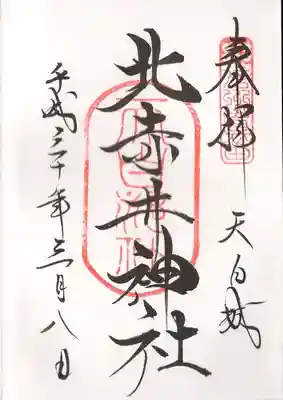 奉拝
天白城
北寺井神社
平成三十年三月八日